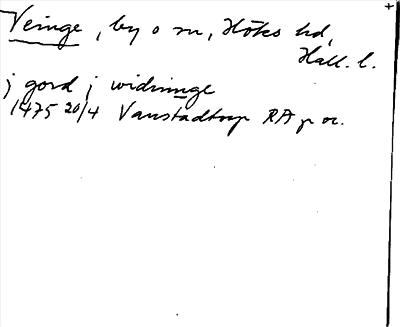 Veinge, by o sn, Höks hd,
Hall. l.
j gord j widninge
1475 20/4 Vanstadtorp RA p or.